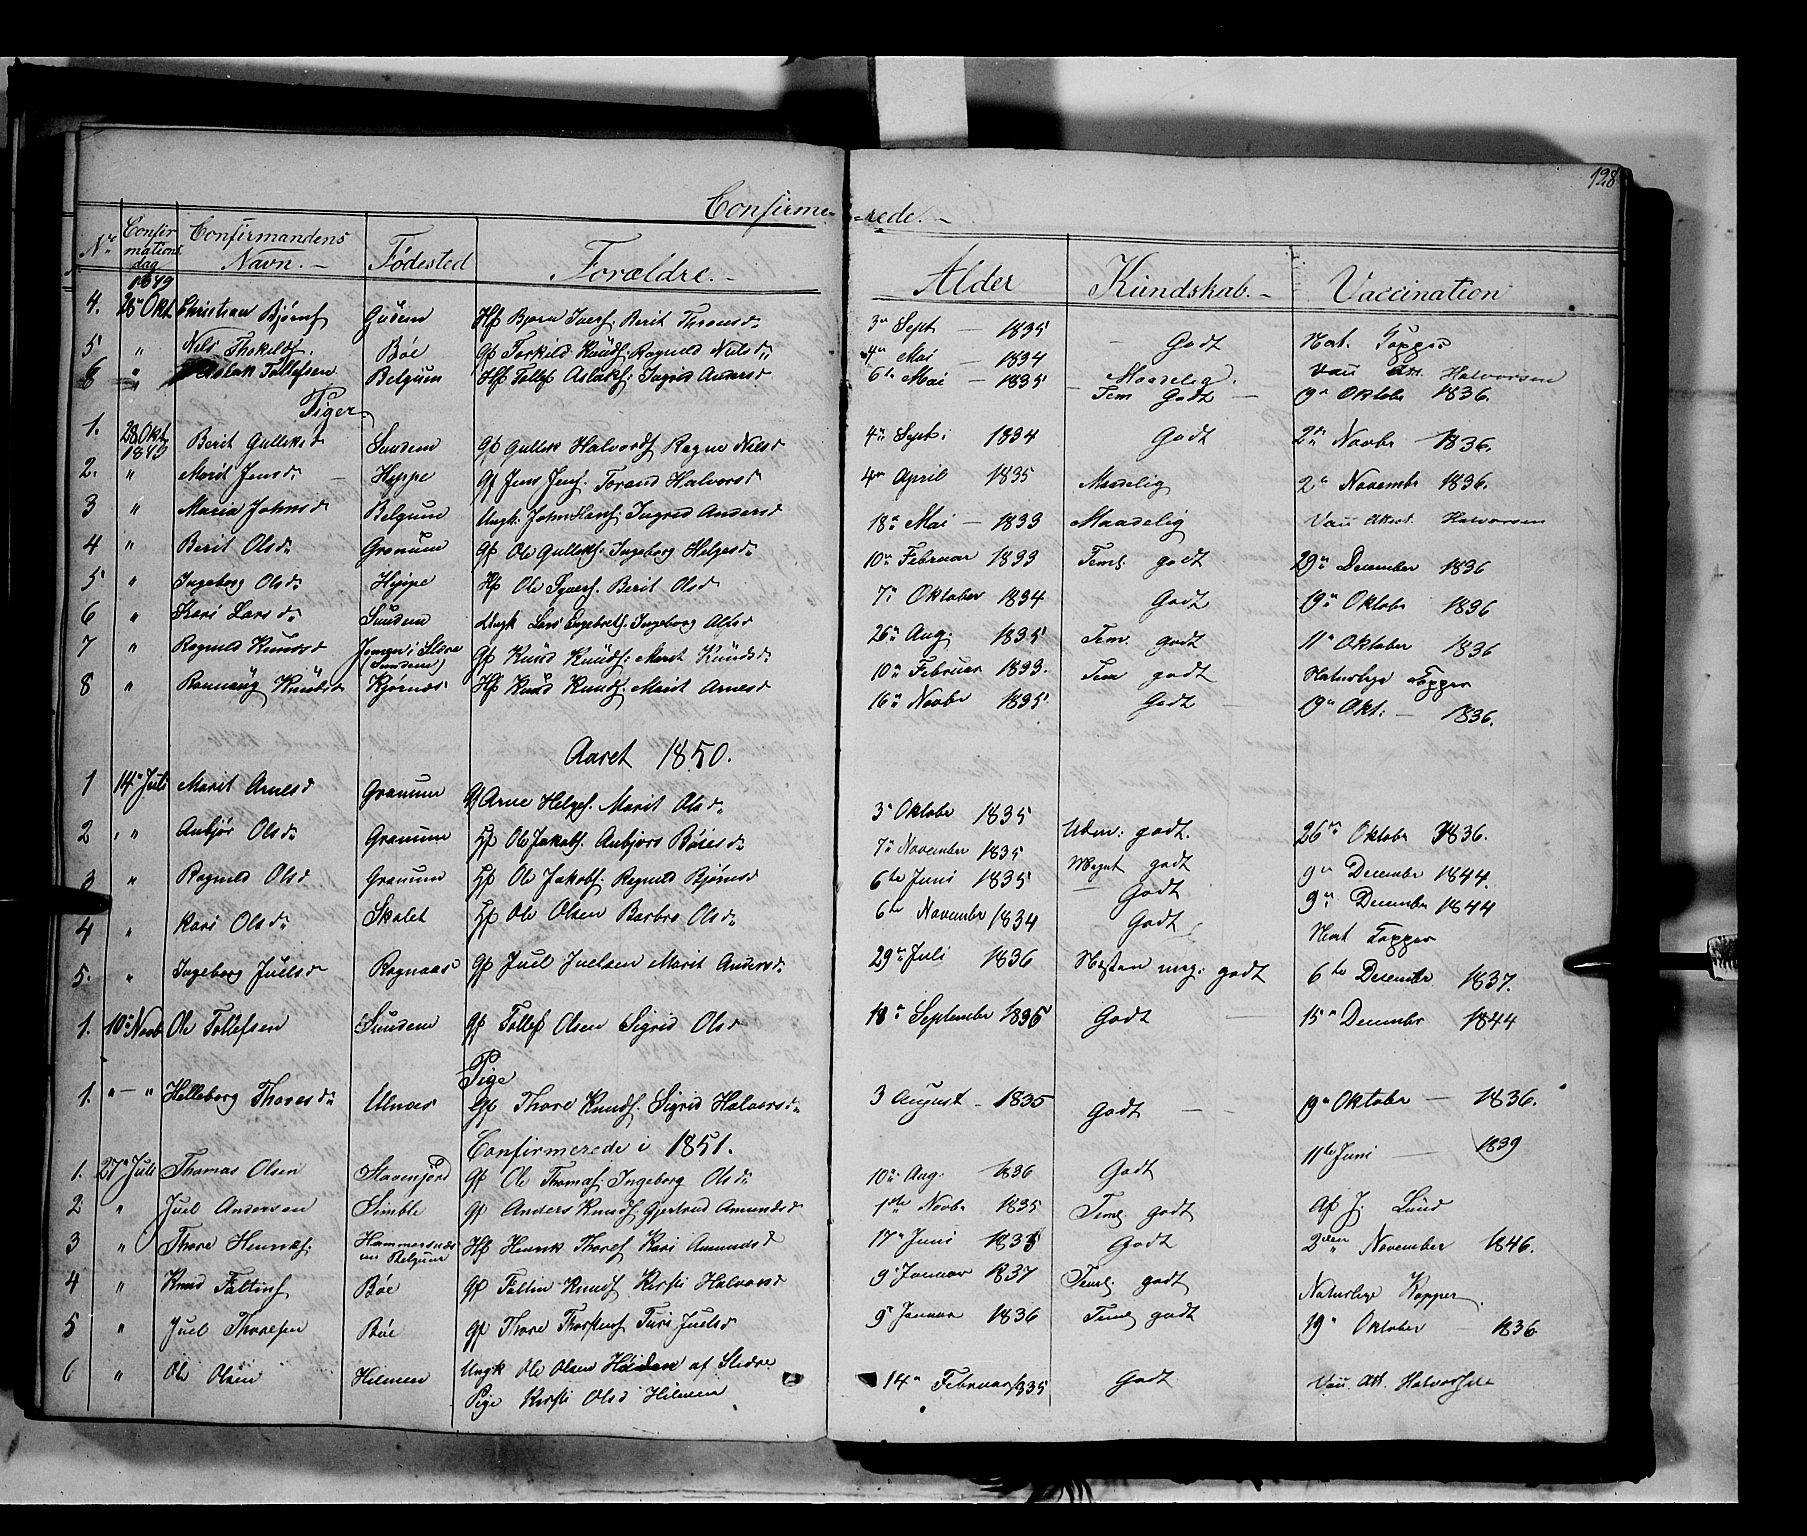 128
Confirme-rede.-
No Confirmationsdag Confirmandens Navn.- Fødested Forældre.- Alder Kundskab.- Vaccination
1849
4. 28 Okt. Christian Bjørnf Gusem Hf Bjørn Iverf: Berit Thronsd. 3n Sept - 1835 - Godt Nat. Copper
5 " Nils Thokildf. Bøe Gf Torkild Knudf: Ragnild Nilsd 4n Mai - 1834 Maadelig. Vaci Att. Halvorsen
6 " Aslak Tollefsen Belgum Hf Tollef Aslakf: Ingrid Andersd 6te Mai - 1835 Tem Godt - 19n Oktobr 1836.
Piger
1. 28 Okt 1849 Berit Gulleksd Sundem Gf Gullek Halvordf Ragne Nilsd 4n Septb: 1834 Godt 2n Novbr 1836.
2. " Marit Jensd - Hippe Gf Jens Jenf: Torand Halvorsd 4n April 1835 Maadelig 2n Novembr 1836.
3 " Maria Johnsd Belgum Ungk: John Hanf: Ingrid Andersd 18n Mai - 1833 Maadelig Vaci Attest. Halvorsen
4 " Berit Olsd Granum Gf Ole Gullikf: Ingeborg Helgesd. 10n Februar 1833 Teml godt 29n December 1836
5 " Ingeborg Olsd Hippe Hf Ole Berit Olsd 7n Oktober 1834 Godt 19n Oktobr 1836
6 " Kari Larsd Sundem Ungk Lars Engebretf: Ingeborg Alfsd 26n Aug: 1835 Tem. godt 11n Oktober 1836
7 " Ragnild Knudsd Jomen i Slidre (Sundem) Gf Knud Knudf: Marit Knudsd. 10n Februar 1833. Tem godt Naturlige Copper
8 " Rannaug Knudsd Kjørnæs Hf Knud Knudf: Marit Arnesd 16n Novbr 1835 Godt 19n Okt: - 1836.
Aaret 1850.
1 14n Juli Marit Arnesd Granum Gf Arne Helgef. Marit Olsd. 3 Oktobr 1835 Udm: godt. 26n Oktobr 1836.
2 " " Anbjør Olsd. Granum Hf Ole Jakobf. Anbjørs 7n November 1835 Meget godt 9n December 1844.
3 " Ragnild Olsd Granum Hf Ole Jakobf Ragnild Bjørnsd 6te Juni 1835 - Godt 9n Decembr 1844
4 " Kari Olsd Skalet Hf Ole Olsen Barbro Olsd. 6te Novembr 1834 Godt Nat Copper
5. " Ingeborg Juelsd Rognaas Gf Juel Juelsen Marit Andersd. 29n Juli 1836 Næsten meg: godt 6te December 1837.
1. 10n Novb Ole Tollefsen Sundem Gf Tollef Olsen Sigrid Olsd 18n September 1835 Godt - 15n Decembr 1844
Pige
1. " - " Helleborg Thoresd Ulnæs Gf Thore Knudf. Sigrid Halvorsd. 3 August - 1835 Godt - - 19n Oktober - 1836.
Confirmerede i 1851.
1. 27n Juli Thomas Olsen Stavenjord Gf Ole Thomasf: Ingeborg Olsd. 10n Aug. 1836 Godt 11te Juni - 1839
2 " Juel Andersen Simble Gf Anders Knudf Gjertrud Amundsd 1ste Novbr 1835 Teml godt Af J. Lund
3 " Thore Henrikf: Hammersnæs un Belgum Hf Henrik Thoref Kari Amundsd 17n Juni 1835 Godt 2den November 1846.
4 " Knud Faltinf Bøe Gf Faltin Knudf Kirsti Halvorsd 9n Januar 1837 Teml: godt Naturlige Kopper.
5 " Juel Thoresen Bøe Gf Thore Thorstenf Turi Juelsd 9n Januar 1836 Teml godt 19n Oktober - 1836.
6 " Ole Olsen Hilmen Ungk Ole Olsen Heiden af Slidre 14n Februar 1835 Godt Vaci. Att. Halvorsen
Pige Kirsti Olsd Hilmen